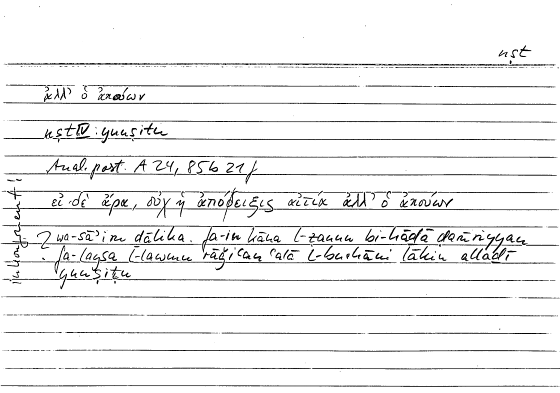 nṣt
ἀλλ' ὁ ἀκούων
nṣt IV: yunṣitu
Anal. post. A 24, 85b 21f
εἰ δὲ ἄρα, οὐχ ἡ ἀπόδειξις αἰτία ἀλλ' ὁ ἀκούων
? wa-sā'ir ḏālika. fa-in kāna l-ẓannu bi-hāḏā ḍarūrīyan
fa-laysa l-lawmu rāǧiʿan ʿalā l-burhāni lākin allaḏī
yunṣitu